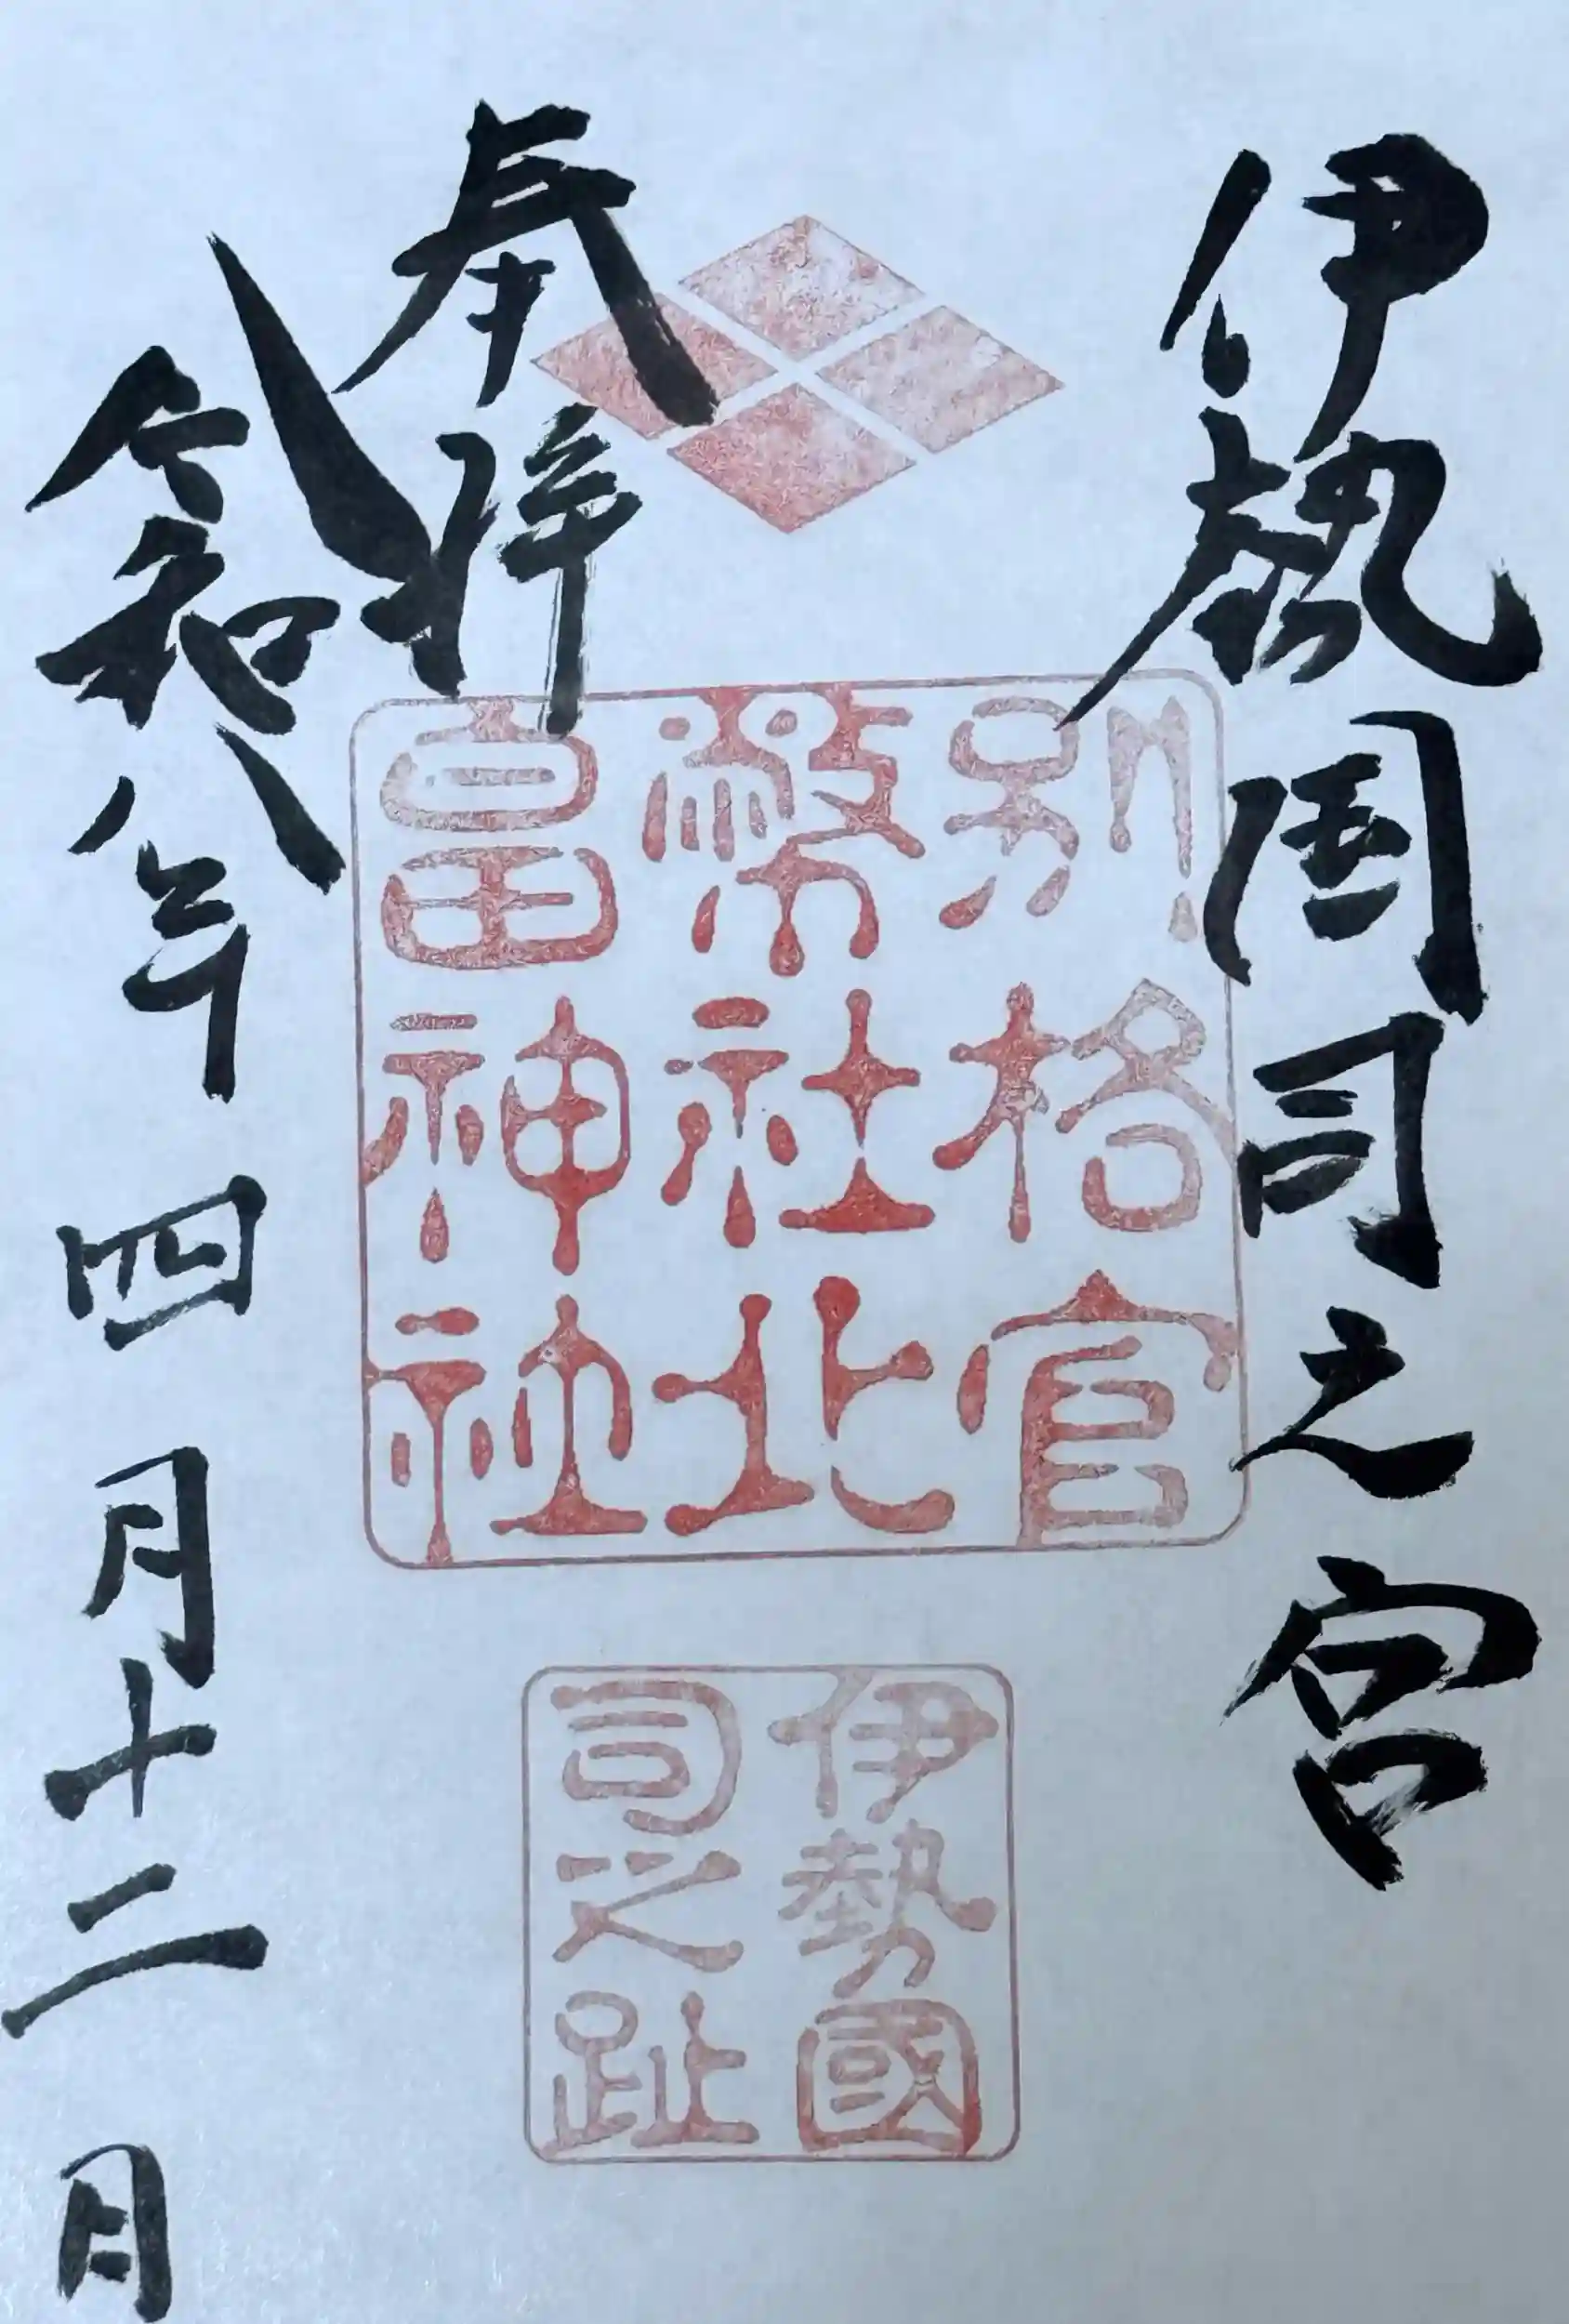 伊勢国司之宮
別格官
幣社北
畠神社
伊勢國
司之趾
奉拝
令和八年四月十二日